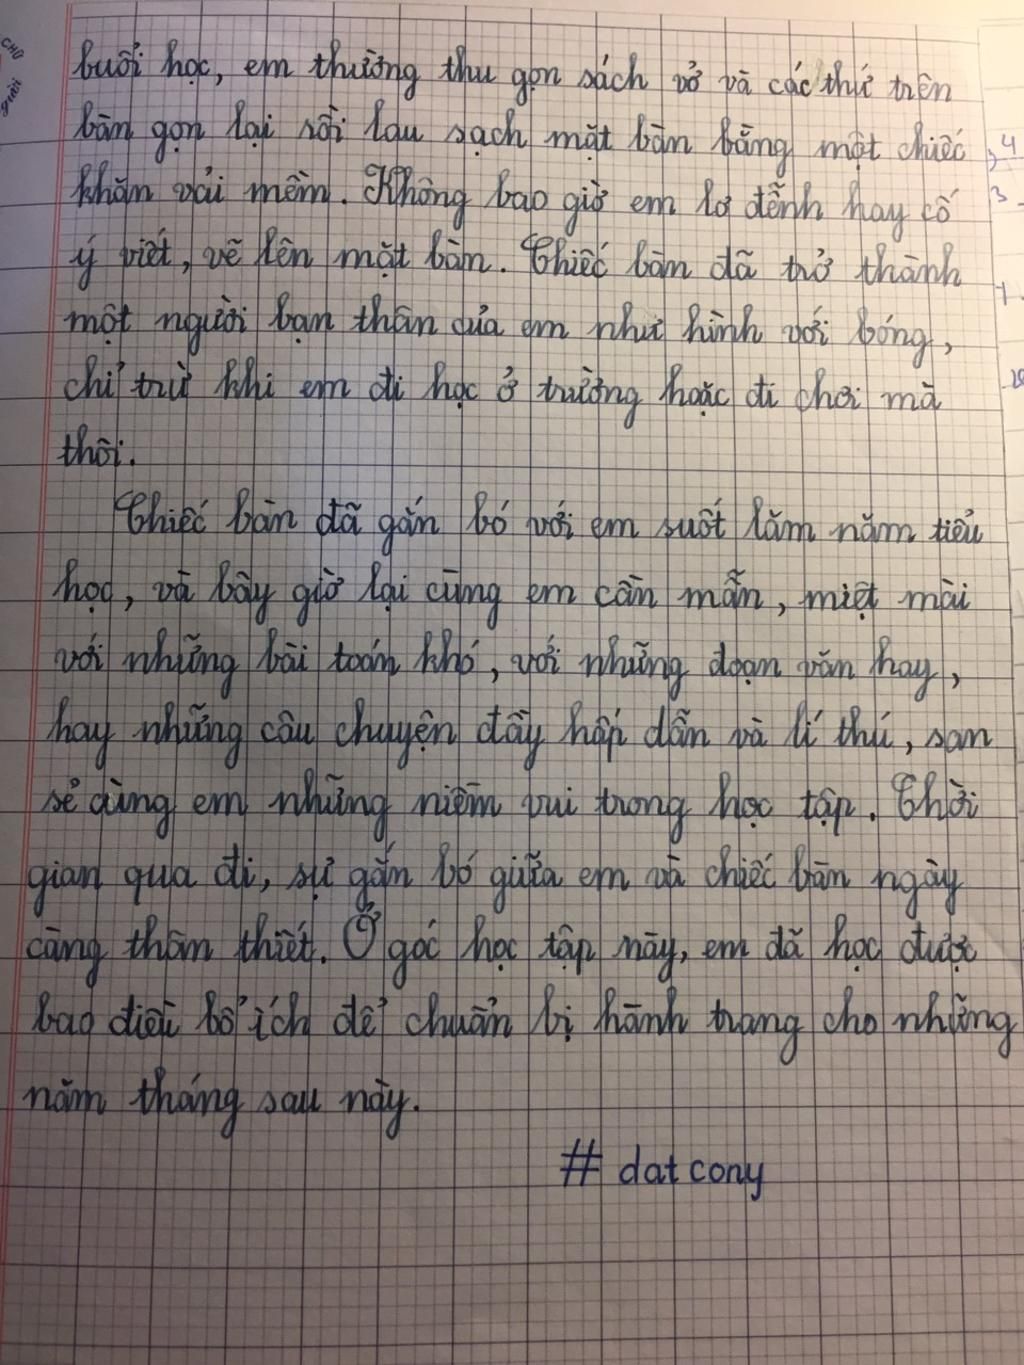 buổi học, em thường thu gọn sách vở và các thứ trên
bàn gọn lại rồi lau sạch mặt bàn bằng một chiếc
khăn vải mềm. Không bao giờ em lơ đễnh hay cố
ý viết, vẽ lên mặt bàn. Chiếc bàn đã trở thành
một người bạn thân của em như hình với bóng,
chỉ trừ khi em đi học ở trường hoặc đi chơi mà
thôi.
Chiếc bàn đã gắn bó với em suốt lăm năm tiểu
học, và bây giờ lại cùng em cần mẫn, miệt mài
với những bài toán khó, với những đoạn văn hay,
hay những câu chuyện đầy hấp dẫn và lí thú, san
sẻ cùng em những niềm vui trong học tập. Thời
gian qua đi, sự gắn bó giữa em và chiếc bàn ngày
càng thân thiết. Ở góc học tập này, em đã học được
bao điều bổ ích để chuẩn bị hành trang cho những
năm tháng sau này.
# datcony